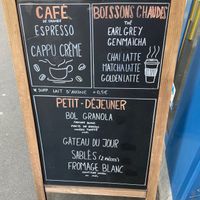 CAFÉ
ESPRESSO
CAPPU CRÈME
BOISSONS CHAUDES
THÉ
EARL GREY
GENMAICHA
CHAI LATTE
MATCHA LATTE
GOLDEN LATTE
SUPP LAIT D'AVOINE +0,5€
PETIT-DÉJEUNER
BOL GRANOLA
GÂTEAU DU JOUR
SABLÉS (2 PIÈCES)
FROMAGE BLANC